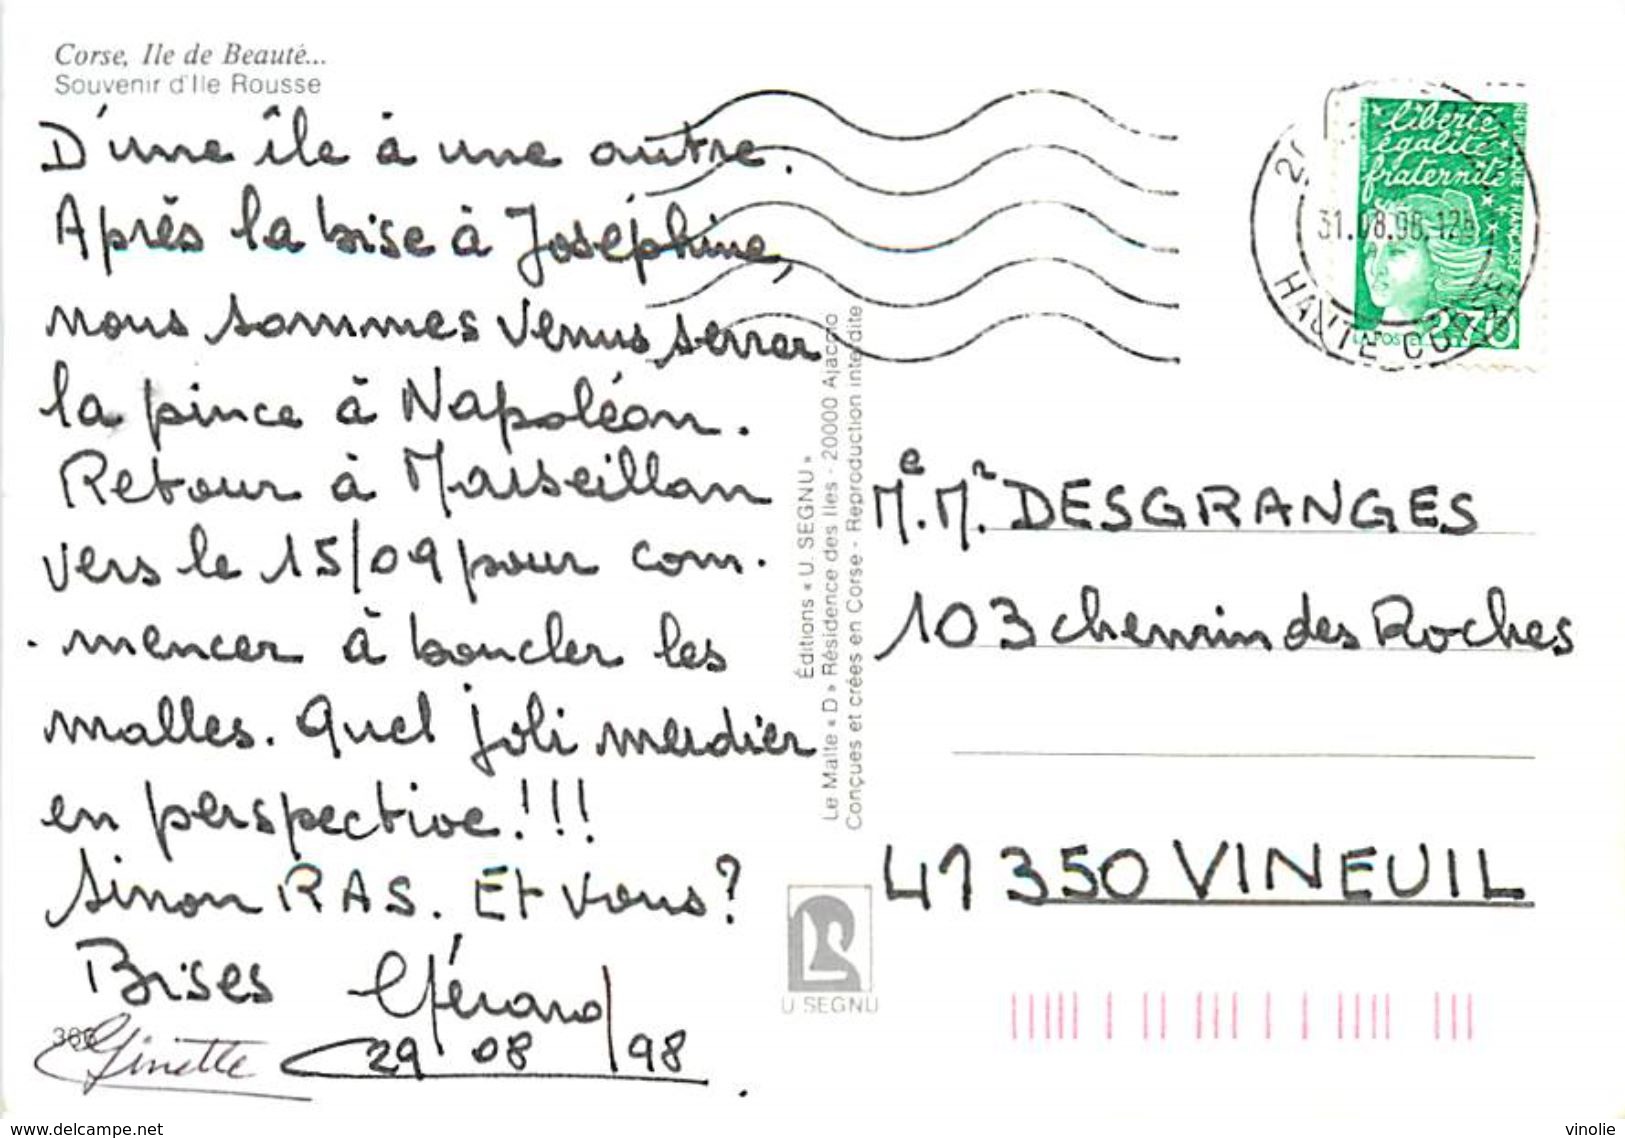 Corse, Ile de Beauté...
Souvenir d'Ile Rousse
D'une île à une autre.
Après la bise à Joséphine,
nous sommes venus serrer
la pince à Napoléon.
Retour à Marseillan
vers le 15/09 pour com-
mencer à boucler les
malles. Quel joli merdier
en perspective!!!
Sinon RAS. Et vous?
Bises Gérard
Ginette 29 08 98
366
Éditions « U. SEGNU »
Le Malte « D » Résidence des Iles - 20000 Ajaccio
Conçues et crées en Corse - Reproduction interdite
U SEGNU
liberté
égalité
fraternité
REPUBLIQUE FRANÇAISE
LA POSTE
2,70
31.08.98.12h
HAUTE CORSE
Me. Mr. DESGRANGES
103 chemin des Roches
41350 VINEUIL
www.delcampe.net
vinolie